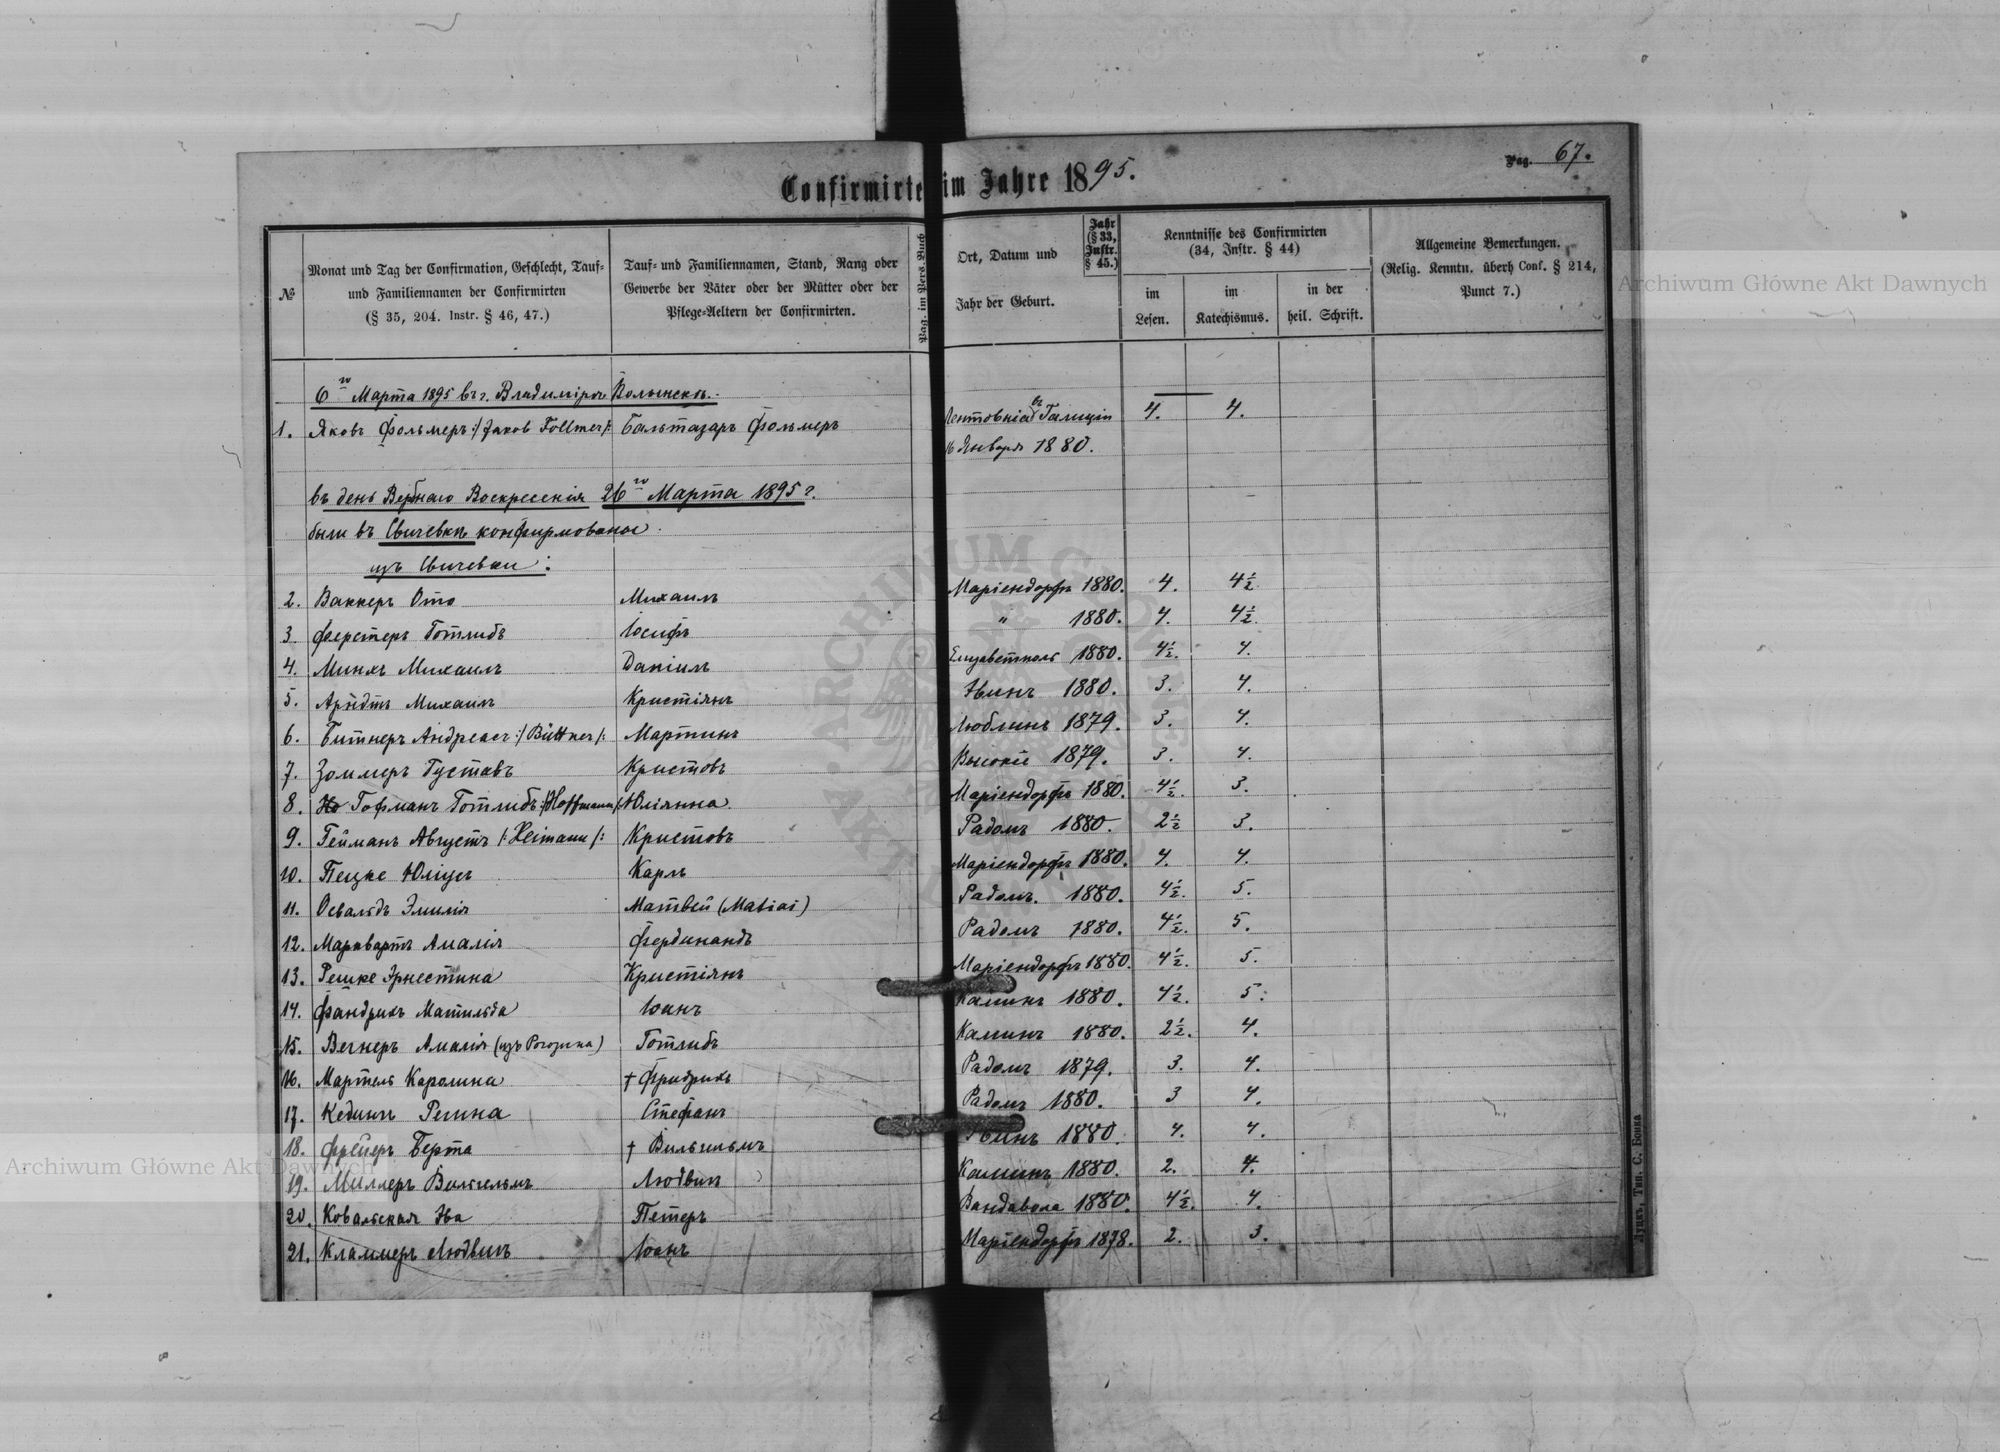 Pag. 67.
Confirmirte im Jahre 1895.
№
Monat und Tag der Confirmation, Geschlecht, Tauf- und Familiennamen der Confirmirten (§ 35, 204. Instr. § 46, 47.)
Tauf- und Familiennamen, Stand, Rang oder Gewerbe der Väter oder der Mütter oder der Pflege-Aeltern der Confirmirten.
Pag. im Pers. Buch
Ort, Datum und Jahr der Geburt.
Jahr (§ 33, Instr. § 45.)
Kenntnisse des Confirmirten (34, Instr. § 44)
im Lesen.
im Katechismus.
in der heil. Schrift.
Allgemeine Bemerkungen. (Relig. Kenntn. überh Conf. § 214, Punct 7.)
6го Марта 1895 въ г. Владимірѣ Волынскѣ.
1. Яковъ Фольмеръ :/Jakob Follmer/: Бальтазаръ Фольмеръ въ Галиціи 4. 4.
16 Января 1880.
въ день Вербнаго Воскресенія 26го Марта 1895 г.
были въ Свичевкѣ конфирмованы
изъ Свичевки:
2. Ваккеръ Ото Михаилъ Маріендорфъ 1880. 4. 4½
3. Ферстеръ Готлибъ Іосифъ " 1880. 4. 4½.
4. Минхъ Михаилъ Даніилъ Елизаветполь 1880. 4½. 4.
5. Арндтъ Михаилъ Кристіянъ 1880. 3. 4.
6. Битнеръ Андреасъ :/Büttner/: Мартинъ Люблинъ 1879. 3. 4.
7. Зоммеръ Густавъ Кристовъ Высокіе 1879. 3. 4.
8. Гофманъ Готлибъ :/Hoffmann/: Юліянна Маріендорфъ 1880. 4½. 3.
9. Гейманъ Августъ /:Heimann/: Кристовъ Радомъ 1880. 2½ 3.
10. Пецке Юліусъ Карлъ Маріендорфъ 1880. 4. 4.
11. Освальдъ Эмилія Матвей (Matias) Радомъ. 1880. 4½. 5.
12. Марквартъ Амалія Фердинандъ Радомъ 1880. 4½. 5.
13. Решке Эрнестина Кристіянъ Маріендорфъ 1880. 4½. 5.
14. Фандрихъ Матильда Іоанъ Каминъ 1880. 4½. 5.
15. Вегнеръ Амалія (изъ Рогозина) Готлибъ Каминъ 1880. 2½. 4.
16. Мартель Каролина † Фридрихъ Радомъ 1879. 3. 4.
17. Регина Стефанъ Радомъ 1880. 3 4.
18. Фрейеръ Берта † Вильгельмъ 1880. 4. 4.
19. Миллеръ Вильгельмъ Людвигъ Каминъ 1880. 2. 4.
20. Ковальская Ева Петеръ Вандавола 1880. 4½. 4.
21. Кламмеръ Людвигъ Іоанъ Маріендорфъ 1878. 2. 3.
Луцкъ, Тип. С. Бонка
Archiwum Główne Akt Dawnych
Archiwum Główne Akt Dawnych